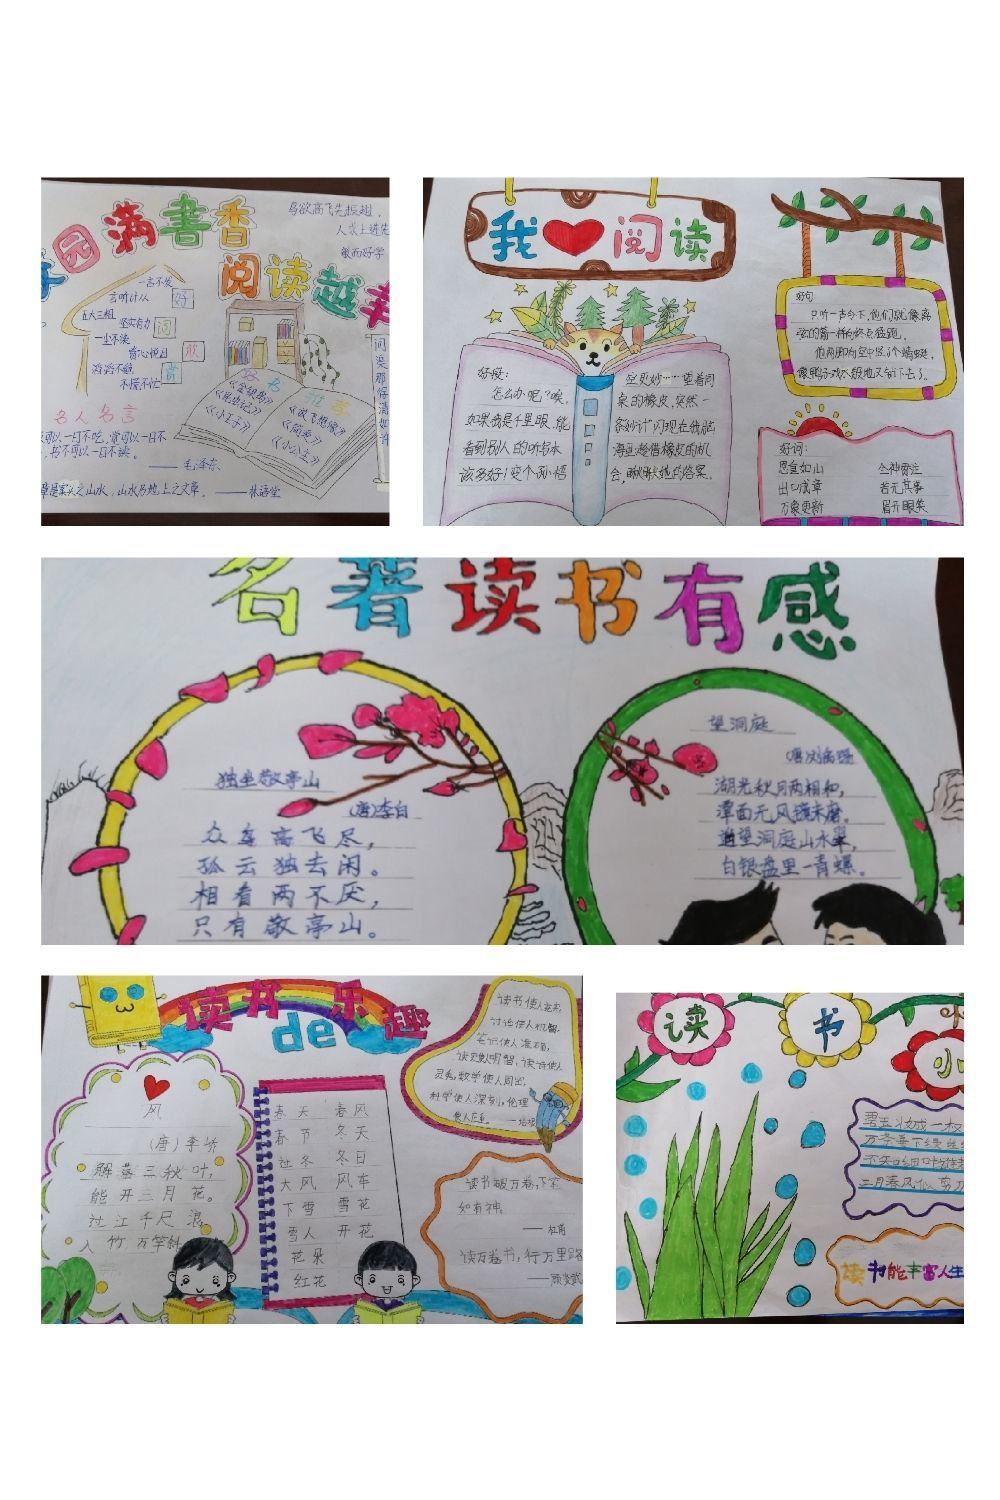 园满書香
阅读越
鸟欲高飞先振翅，
人求上进先
敏而好学
一言不发
言听计从
好
五大三粗
坚实有力
词
一尘不染
赏心悦目
欣
滔滔不绝
不慌不忙
赏
好书
推荐
《昆虫记》
《小王子》
《放飞想像》
《简爱》
《小公主》
名人名言
可以一日不吃，觉可以一日不
，书不可以一日不读。
——毛泽东
章是案头之山水，山水另地上之文章。——林语堂
我阅读
好段：
怎么办呢？唉，
如果我是千里眼，能
看到别人的听写本
该多好！变个孙悟
空更妙……望着同
桌的橡皮，突然一
条妙计闪现在我脑
海里：趁借橡皮的机
会，瞅瞅她的答案。
好句
只听一声令下，他们就像离
弦的箭一样向终点猛跑。
好词：
恩重如山
全神贯注
出口成章
若无其事
万象更新
眉开眼笑
名著读书有感
独坐敬亭山
(唐)李白
众鸟高飞尽，
孤云独去闲。
相看两不厌，
只有敬亭山。
望洞庭
(唐)刘禹锡
湖光秋月两相和，
潭面无风镜未磨。
遥望洞庭山水翠，
白银盘里一青螺。
读书de乐趣
风
(唐)李峤
解落三秋叶，
能开三月花。
过江千尺浪，
入竹万竿斜
春天 春风
春节 冬天
过冬 冬日
大风 风车
下雪 雪花
雪人 开花
花朵
红花
读书使人充实，
讨论使人机智，
笔记使人准确，
读史使人明智，读诗使人
灵秀，数学使人周密，
科学使人深刻，伦理
使人庄重。——培根
读书破万卷，下笔
如有神。
——杜甫
读万卷书，行万里路
——顾炎武
读书小
碧玉妆成一
万条垂下绿丝
不知细叶谁
二月春风似剪刀
读书能丰富人生